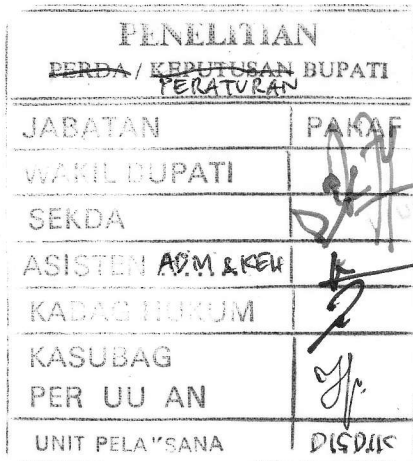 PENELITIAN
PERDA / KEPUTUSAN BUPATI
PERATURAN
JABATAN PARAF
WAKIL BUPATI
SEKDA
ASISTEN ADM & KEU
KABAG HUKUM
KASUBAG
PER UU AN
UNIT PELA"SANA